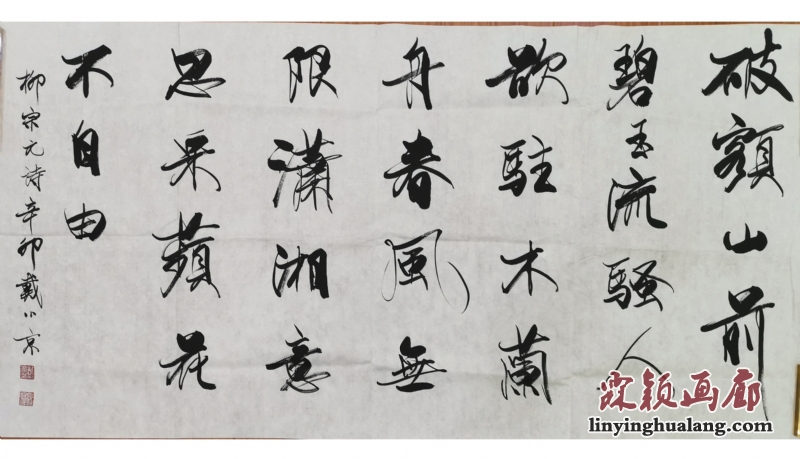 破額山前
碧玉流騷人
欲駐木蘭
舟春風無
限瀟湘意
思采蘋花
不自由
柳宗元詩辛卯戴小京
霖颖画廊
linyinghualang.com